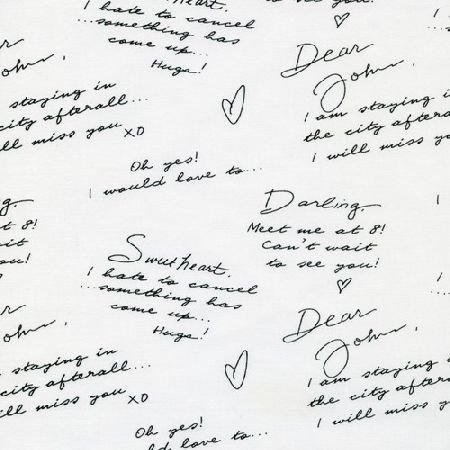 Sweetheart,
I hate to cancel
...something has
come up...
Hugs!
Dear
John,
I am staying in
the city afterall...
I will miss you
Dear
John,
staying in
city afterall...
will miss you XO
Oh yes!
I would love to...
Darling,
Meet me at 8!
Can't wait
to see you!
at 8!
wait
you!
Sweetheart,
I hate to cancel
...something has
come up...
Hugs!
Dear
John,
I am staying
the city after
I will miss yo
staying in
city afterall...
will miss you XO
Oh yes!
love to...